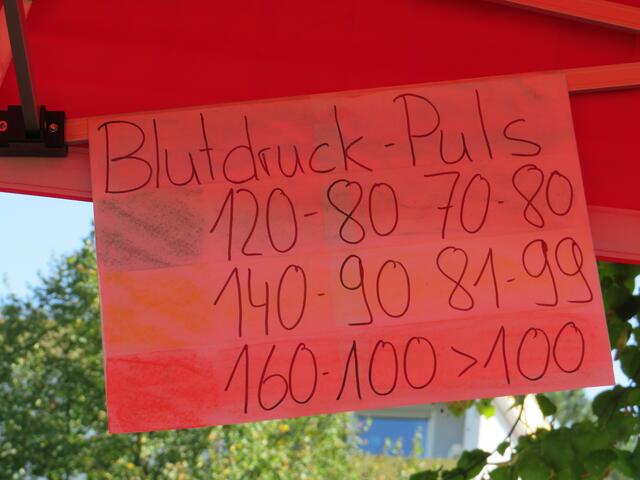 Blutdruck-Puls
120-80 70-80
140-90 81-99
160-100 >100